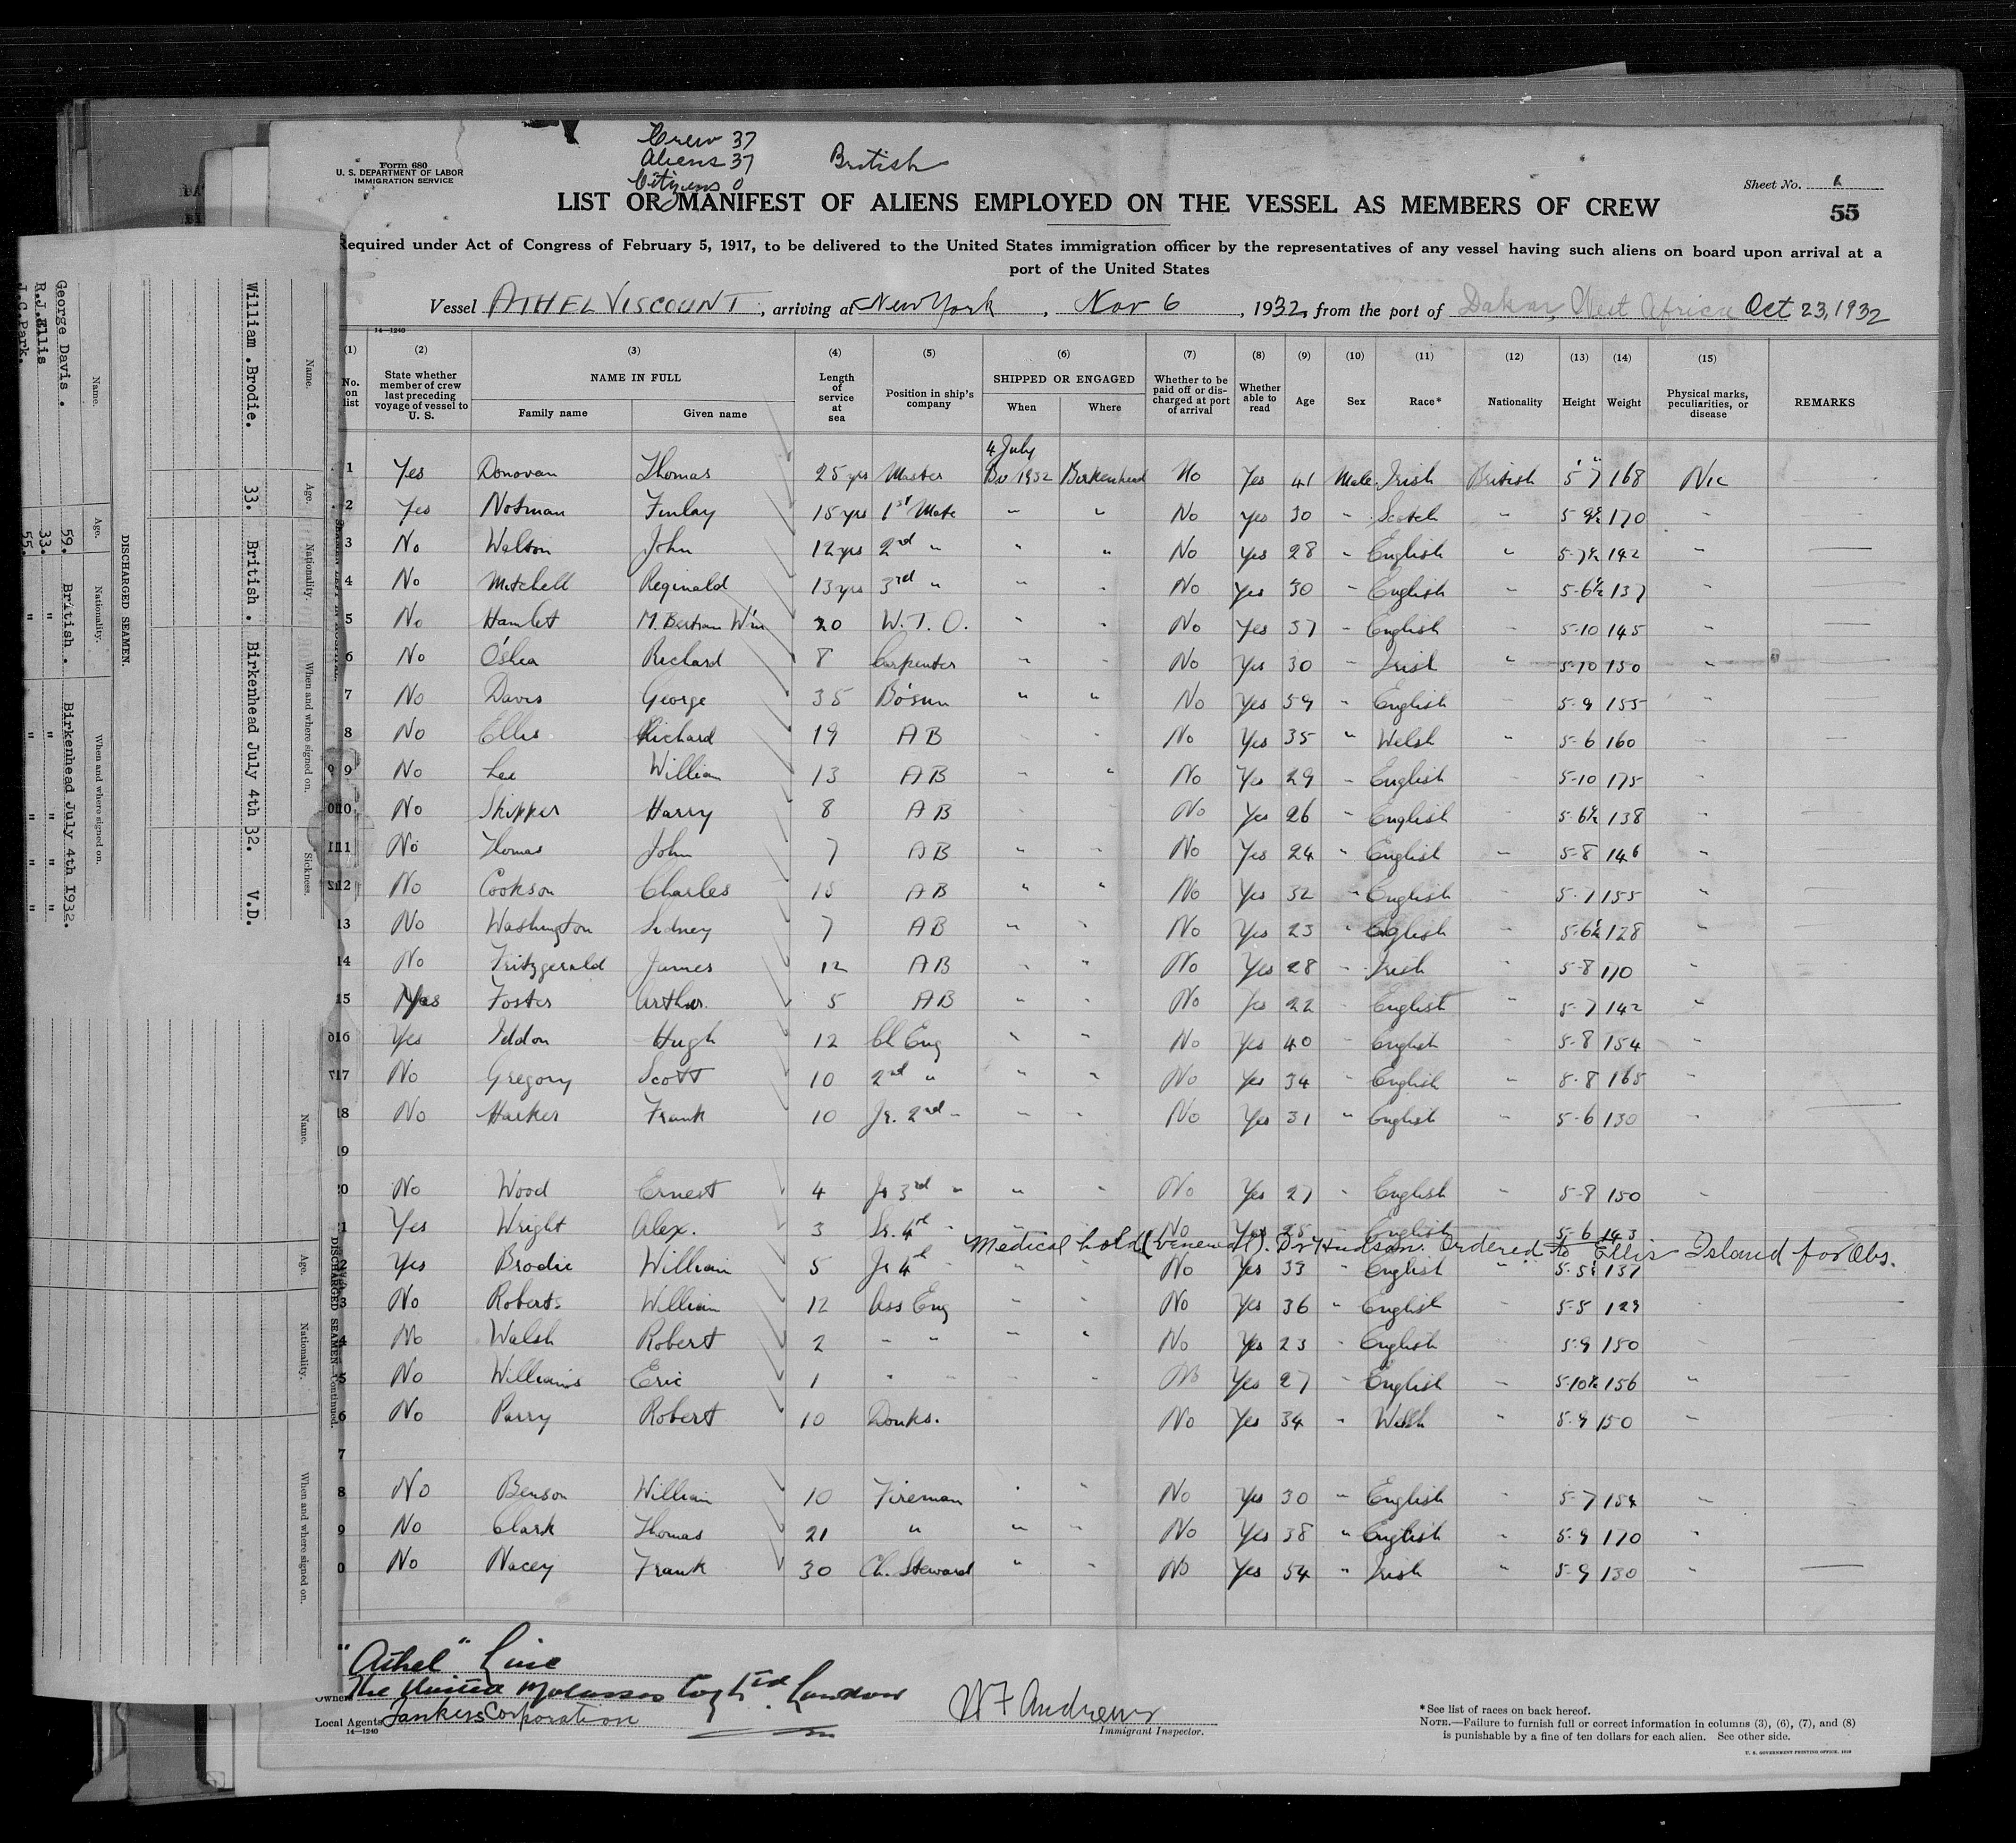 Crew 37
Aliens 37
Citizens 0
British
Form 680
U. S. DEPARTMENT OF LABOR
IMMIGRATION SERVICE
Sheet No. 1
LIST OR MANIFEST OF ALIENS EMPLOYED ON THE VESSEL AS MEMBERS OF CREW
55
Required under Act of Congress of February 5, 1917, to be delivered to the United States immigration officer by the representatives of any vessel having such aliens on board upon arrival at a
port of the United States
Vessel ATHELVISCOUNT, arriving at New York, Nov 6, 1932, from the port of Dakar, West Africa Oct 23, 1932
14—1240
(1) (2) (3) (4) (5) (6) (7) (8) (9) (10) (11) (12) (13) (14) (15)
No. on list State whether member of crew last preceding voyage of vessel to U. S. NAME IN FULL Family name Given name Length of service at sea Position in ship's company SHIPPED OR ENGAGED When Where Whether to be paid off or discharged at port of arrival Whether able to read Age Sex Race* Nationality Height Weight Physical marks, peculiarities, or disease REMARKS
4 July
1 Yes Donovan Thomas 25 yrs Master 1932 Birkenhead No Yes 41 Male Irish British 5' 7" 168
2 Yes Notman Finlay 15 yrs 1st Mate " " No Yes 30 " Scotch " 5-9½ 170 "
3 No Walton John 12 yrs 2nd " " " No Yes 28 " English " 5-7½ 142 "
4 No Mitchell Reginald 13 yrs 3rd " " " No Yes 30 " English " 5-6½ 137 "
5 No Hamlet M. Bertram Wm 20 W. T. O. " " No Yes 37 " English " 5-10 145 "
6 No O'Shea Richard 8 Carpenter " " No Yes 30 " Irish " 5-10 150 "
7 No Davis George 35 Bo'sun " " No Yes 59 " English " 5-9 155 "
8 No Ellis Richard 19 AB " " No Yes 35 " Welsh " 5-6 160 "
9 No Lee William 13 AB " " No Yes 29 " English " 5-10 175 "
10 No Skipper Harry 8 AB " " No Yes 26 " English " 5-6½ 138 "
11 No Thomas John 7 AB " " No Yes 24 " English " 5-8 146 "
12 No Cookson Charles 15 AB " " No Yes 32 " English " 5-7 155 "
13 No Washington Sidney 7 AB " " No Yes 23 " English " 5-6½ 128 "
14 No Fritzgerald James 12 AB " " No Yes 28 " Irish " 5-8 170 "
15 Yes Foster Arthur 5 AB " " No Yes 22 " English " 5-7 142 "
16 Yes Iddon Hugh 12 Ch Eng " " No Yes 40 " English " 5-8 154 "
17 No Gregory Scott 10 2nd " " " No Yes 34 " English " 5-8 165 "
18 No Harker Frank 10 Jr. 2nd " " " No Yes 31 " English " 5-6 130 "
19
20 No Wood Ernest 4 Jr 3rd " " " No Yes 27 " English " 5-8 150 "
21 Yes Wright Alex. 3 Sr. 4th " " " No Yes 25 " English " 5-6 143
Medical hold (venereal). Dr Hudson. Ordered to Ellis Island for Obs.
2 Yes Brodie William 5 Jr 4th " " " No Yes 33 " English " 5-5½ 137
3 No Roberts William 12 Ass Eng " " No Yes 36 " English " 5-5 129 "
4 No Walsh Robert 2 " " " " No Yes 23 " English " 5-9 150 "
5 No Williams Eric 1 " " " " No Yes 27 " English " 5-10½ 156 "
6 No Parry Robert 10 Donks. No Yes 34 " Welsh " 5-9 150 "
7
8 No Benson William 10 Fireman " " No Yes 30 " English " 5-7 154 "
9 No Clark Thomas 21 " " " No Yes 38 " English " 5-9 170 "
0 No Nacey Frank 30 Ch. Steward " " No Yes 54 " Irish " 5-9 130 "
"Athel" Line
Owners The United Molasses Coy Ltd. London
Local Agents Tankers Corporation
14—1240
W F Andrews
Immigrant Inspector.
*See list of races on back hereof.
NOTE.—Failure to furnish full or correct information in columns (3), (6), (7), and (8)
is punishable by a fine of ten dollars for each alien. See other side.
U. S. GOVERNMENT PRINTING OFFICE
Name. Age. Nationality. When and where signed on. Sickness.
William .Brodie. 33. British . Birkenhead July 4th 32. V.D.
DISCHARGED SEAMEN.
Name. Age. Nationality. When and where signed on.
George Davis . 59. British . Birkenhead July 4th 1932.
R.J.Ellis 33. " " " " "
J.C.Park. 55. " " " " "
DISCHARGED SEAMEN—Continued.
Name. Age. Nationality. When and where signed on.